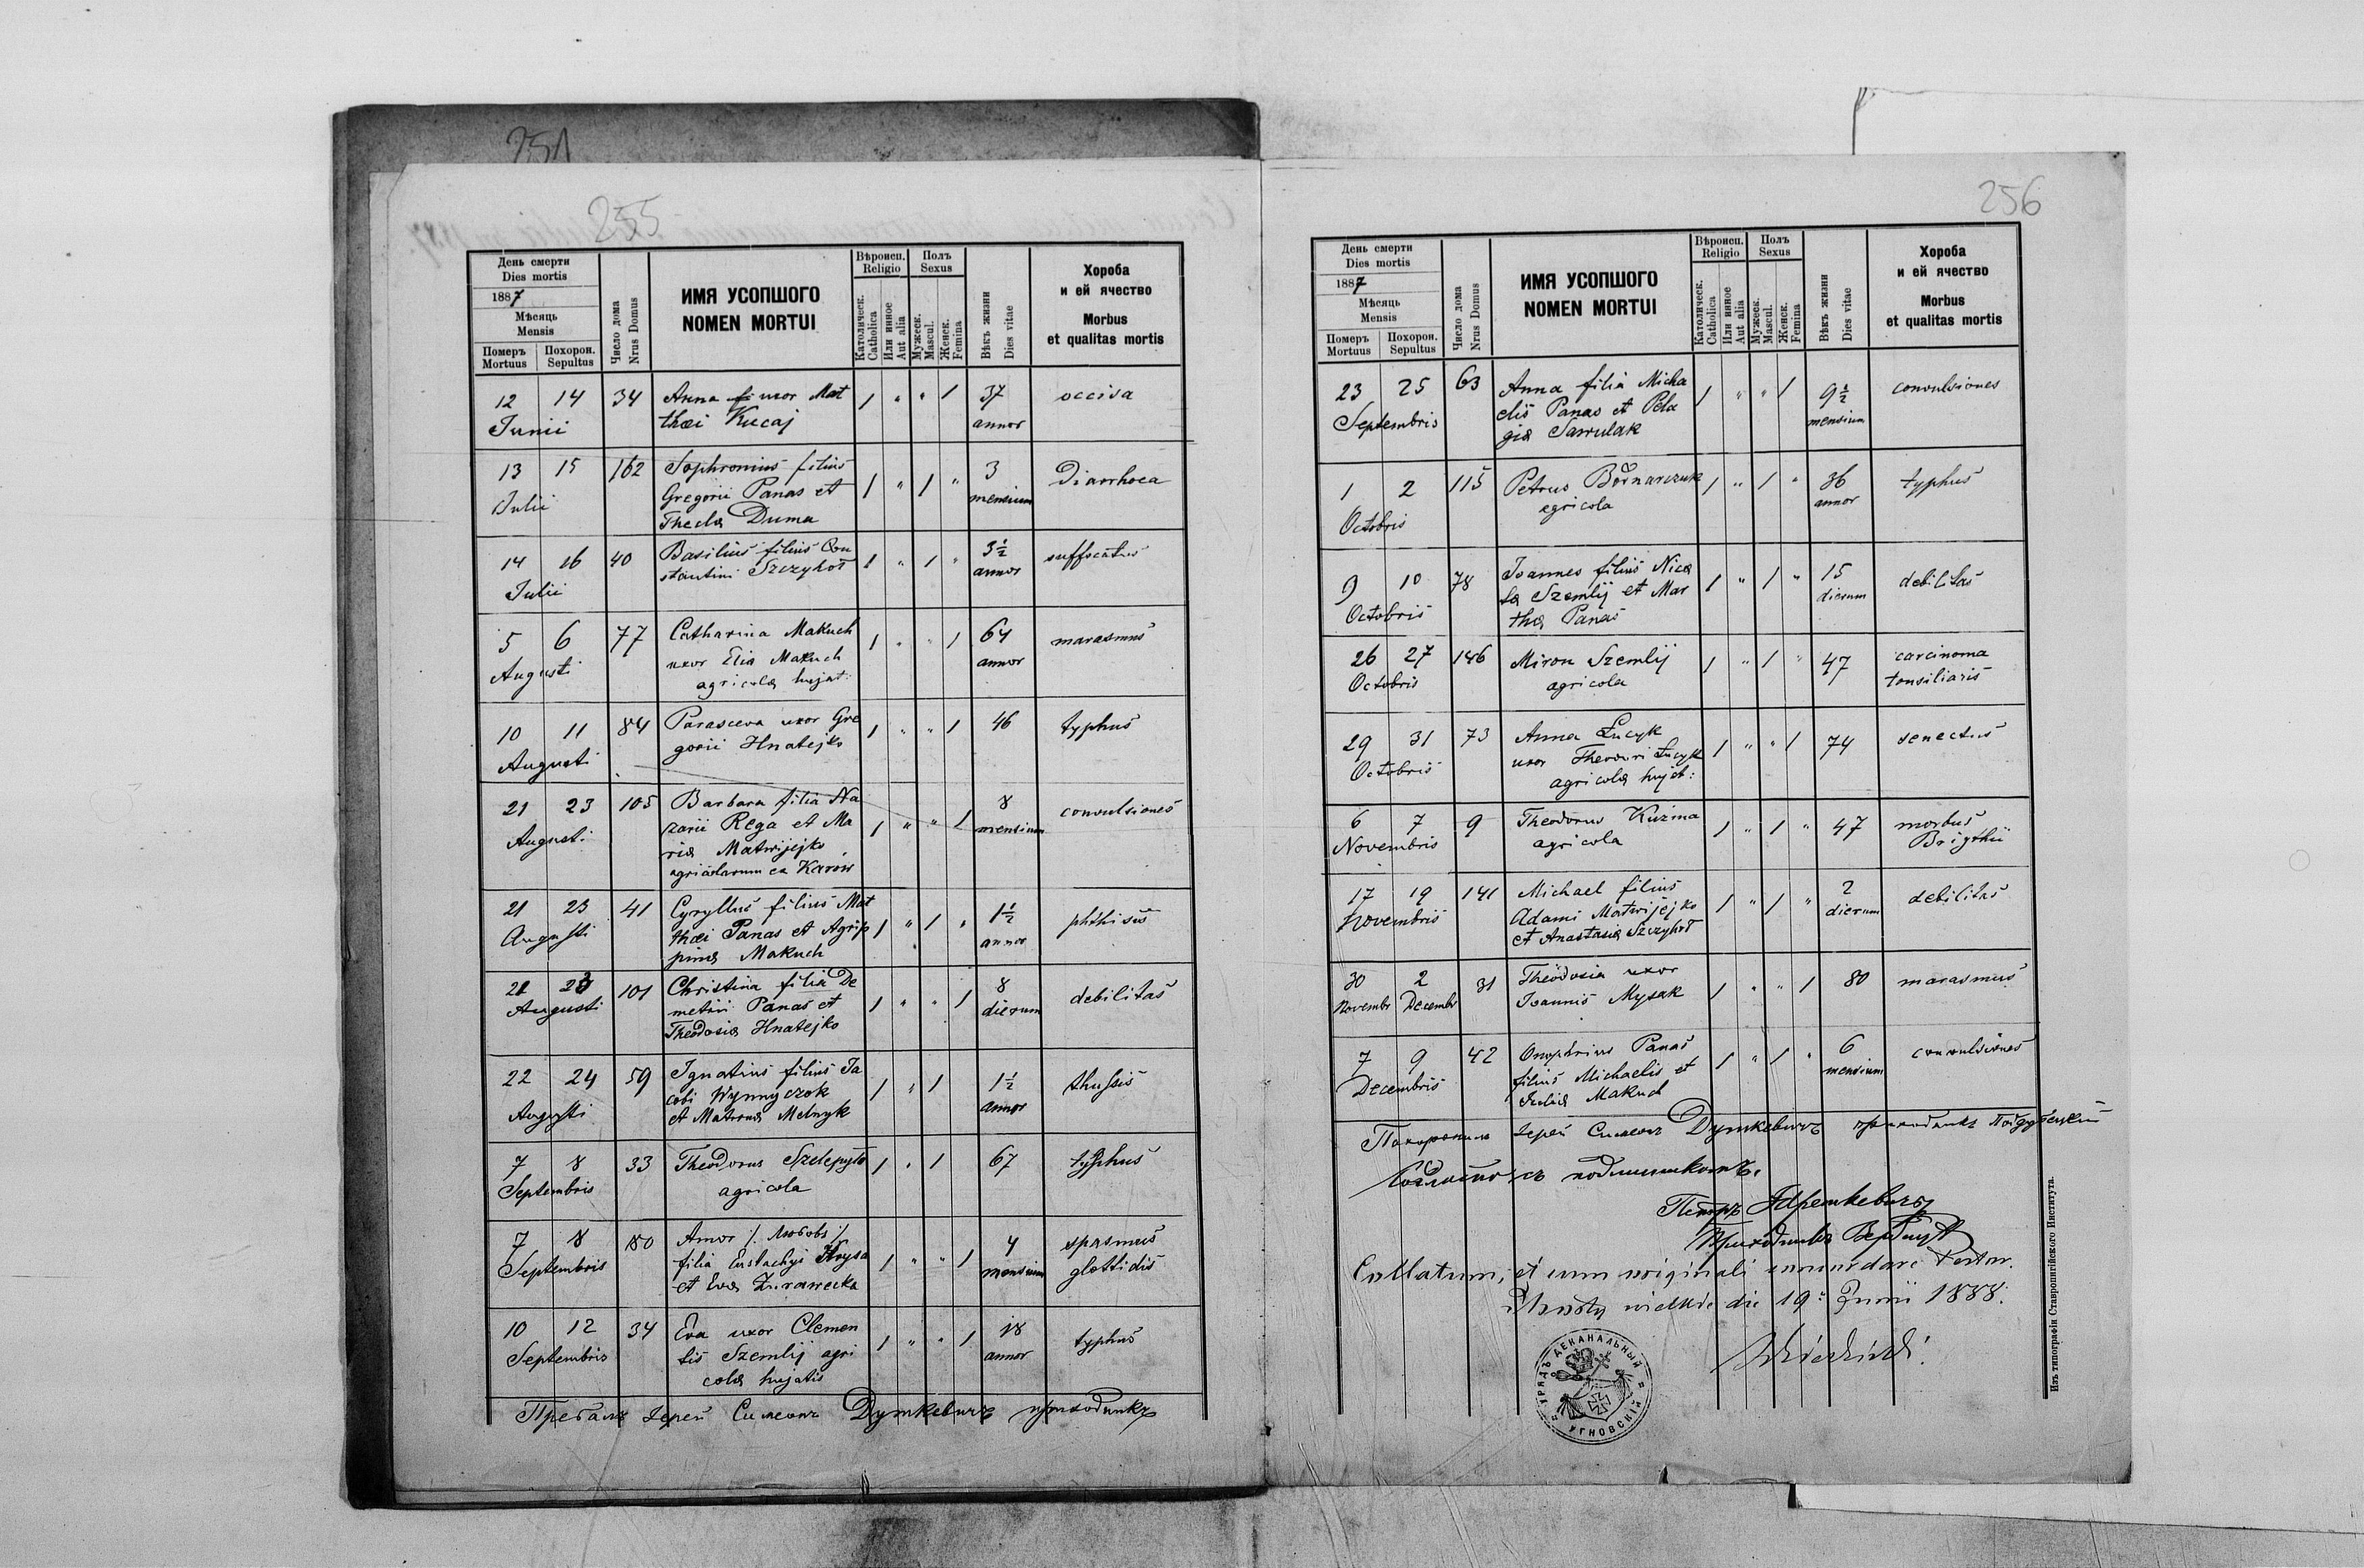 251
255
День смерти
Dies mortis
1887
Мѣсяць
Mensis
Померъ
Mortuus
Похорон.
Sepultus
Число дома
Nrus Domus
ИМЯ УСОПШОГО
NOMEN MORTUI
Вѣроисп.
Religio
Католическ.
Catholica
Или инное
Aut alia
Полъ
Sexus
Мужеск.
Mascul.
Женск.
Femina
Вѣкъ жизни
Dies vitae
Хороба
и ей ячество
Morbus
et qualitas mortis
12 14 34 Anna uxor Mat 1 " " 1 37 occisa
Junii thæi Kucaj annor
13 15 162 Sophronius filius 1 " 1 " 3 Diarrhoea
Julii Gregorii Panas et mensium
Theclæ Duma
14 16 40 Basilius filius Con 1 " 1 " 3½ suffocatus
Julii stantini Szczyhoł annor
5 6 77 Catharina Makuch 1 " " 1 64 marasmus
Augusti uxor Eliæ Makuch annor
agricolæ hujat:
10 11 84 Parasceva uxor Gre 1 " " 1 46 typhus
Augusti gorii Hnatejko
21 23 105 Barbara filia Na 1 " " 1 8 convulsiones
Augusti zarii Rega et Ma mensium
riæ Matwijejko
agricolarum ex Karow
21 23 41 Cyryllus filius Mat 1 " 1 " 1½ phthisis
Augusti thæi Panas et Agrip annor
pinæ Makuch
21 23 101 Christina filia De 1 " " 1 8 debilitas
Augusti metrii Panas et dierum
Theodosiæ Hnatejko
22 24 59 Ignatius filius Ja 1 " 1 1½ thussis
Augusti cobi Wynnyczok annor
et Matronæ Melnyk
7 8 33 Theodorus Szelepyło 1 " 1 67 typhus
Septembris agricola
7 8 180 Amor /. Любовь ./ 1 " " 1 4 spasmus
Septembris filia Eustachyi Hrysa mensium glottidis
et Evæ Żurawecka
10 12 34 Eva uxor Clemen 1 " " 1 18 typhus
Septembris tis Szemlij agri annor
colæ hujatis
Іерей Симеонъ Дуткевичъ приходникъ
256
День смерти
Dies mortis
1887
Мѣсяць
Mensis
Померъ
Mortuus
Похорон.
Sepultus
Число дома
Nrus Domus
ИМЯ УСОПШОГО
NOMEN MORTUI
Вѣроисп.
Religio
Католическ.
Catholica
Или инное
Aut alia
Полъ
Sexus
Мужеск.
Mascul.
Женск.
Femina
Вѣкъ жизни
Dies vitae
Хороба
и ей ячество
Morbus
et qualitas mortis
23 25 63 Anna filia Micha 1 " " 1 9½ convulsiones
Septembris elis Panas et Pela mensium
giæ Sawulak
1 2 115 Petrus Bodnarczuk 1 " 1 " 36 typhus
Octobris agricola annor
9 10 78 Joannes filius Nice 1 " 1 " 15 debilitas
Octobris tæ Szemlij et Mar dierum
thæ Panas
26 27 146 Miron Szemlij 1 " 1 " 47 carcinoma
Octobris agricola tonsiliaris
29 31 73 Anna Łucyk 1 " " 1 74 senectus
Octobris uxor Theodori Łucyk
agricolæ hujat:
6 7 9 Theodorus Kuźma 1 " 1 " 47 morbus
Novembris agricola Brigthii
17 19 141 Michael filius 1 " 1 " 2 debilitas
Novembris Adami Matwijejko dierum
et Anastasiæ Szczyhoł
30 2 31 Theodosia uxor 1 " " 1 80 marasmus
Novembr Decembr Joannis Mysak
7 9 42 Onuphrius Panas 1 " 1 " 6 convulsiones
Decembris filius Michaelis et mensium
Juliæ Makuch
Похоронилъ Іерей Симеонъ Дуткевичъ приходникъ
съ подлинникомъ.
Петръ
Приходникъ
Collatum, et cum originali concordare testor.
die 19. Junii 1888.
УРЯДЪ ДЕКАНАЛЬНЫЙ УГНОВСКІЙ
Изъ типографіи Ставропигійского Института.